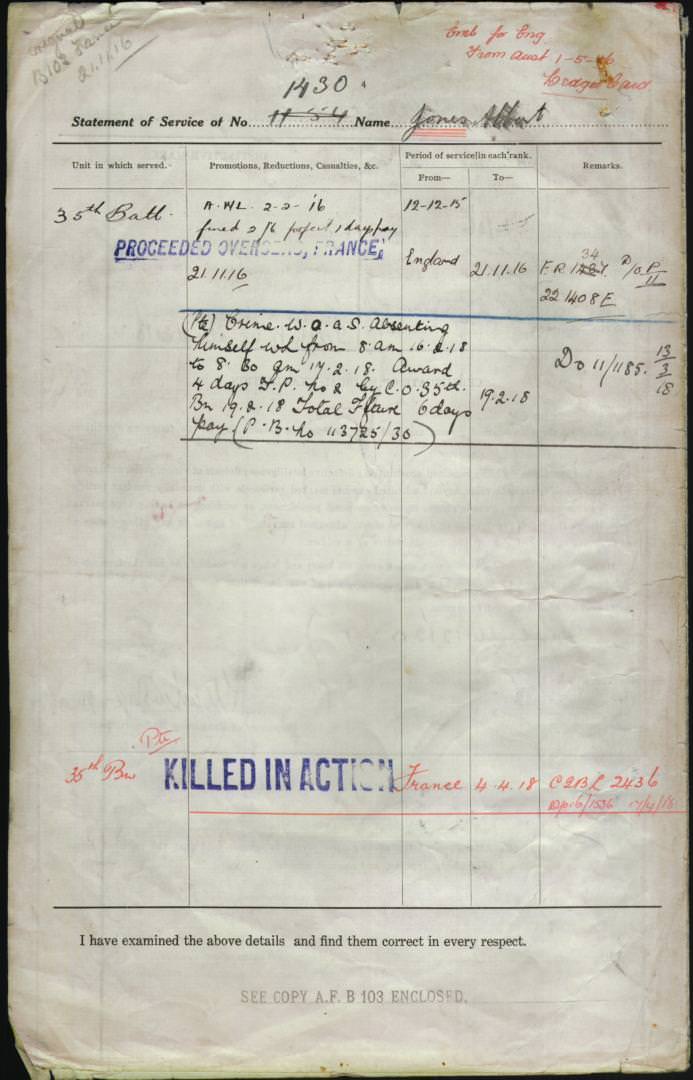 B103 France
21.11.16
Emb for Eng
From Aust 1-5-16
Ledger Card
1430
Statement of Service of No. 1154 Name Jones Albert
Unit in which served.
Promotions, Reductions, Casualties, &c.
Period of service in each rank.
From—
To—
Remarks.
35th Batt.
A.W.L. 2-2-16
fined 2/6 forfeit 1 days pay
12-12-15
PROCEEDED OVERSEAS, FRANCE,
21.11.16
England
21.11.16
34
22 1408E
(Pte) Crime. W.O.A.S. Absenting
himself from 8 am 16.2.18
to 8.30 am 17.2.18. Award
4 days F.P. No 2 by C.O. 35th.
Bn 19.2.18 Total Fture 6 days
pay (P.B. No 113725/30)
19.2.18
Do 11/1185. 13/3/18
35th Bn
Pte
KILLED IN ACTION
France
4.4.18
2436
I have examined the above details and find them correct in every respect.
SEE COPY A.F. B 103 ENCLOSED.